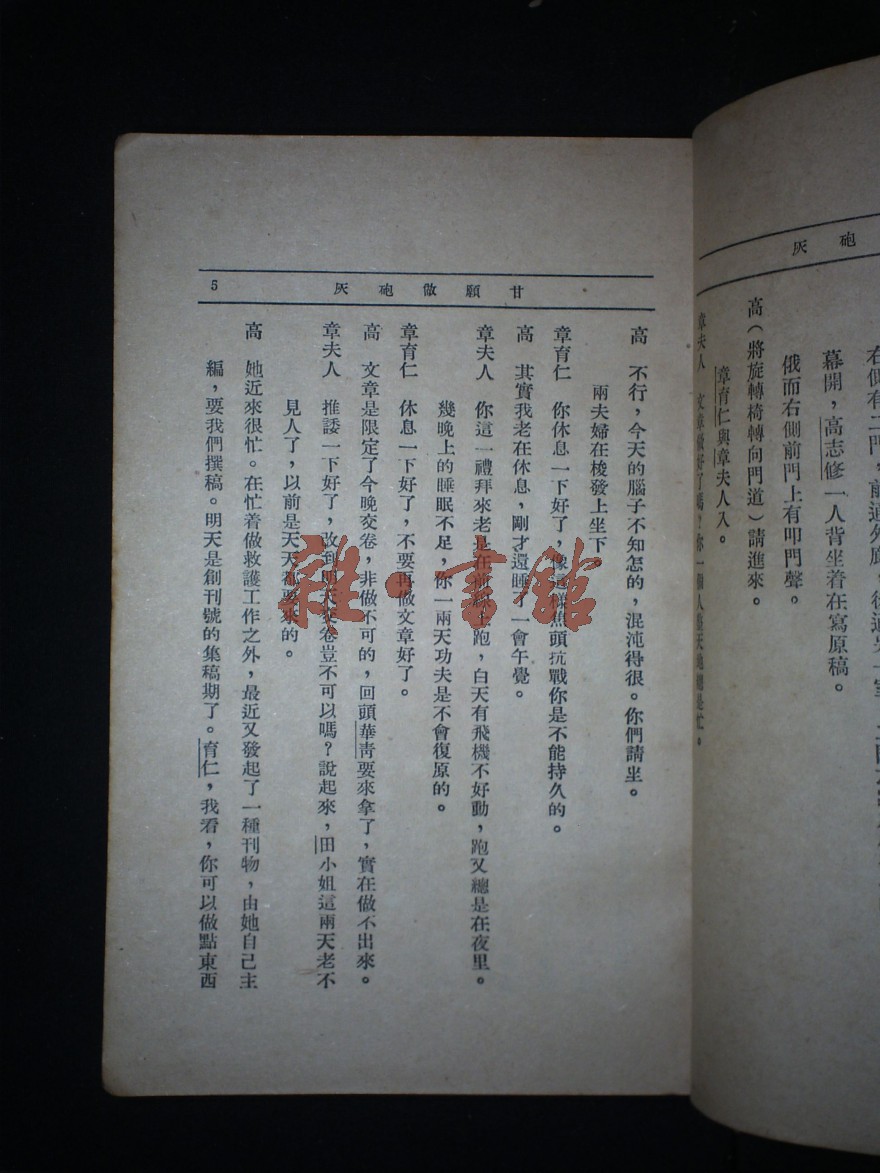 砲灰
右側有二門，前通外廊，後通另一室，
幕開，高志修一人背坐着在寫原稿。
俄而右側前門上有叩門聲。
高（將旋轉椅轉向門道）請進來。
章育仁與章夫人入。
章夫人　文章做好了嗎？你一個人整天
甘願做砲灰　5
高　不行，今天的腦子不知怎的，混沌得很。你們請坐。
兩夫婦在梭發上坐下。
章育仁　你休息一下好了，像這樣魚頭抗戰你是不能持久的。
高　其實我老在休息，剛才還睡了一會午覺。
章夫人　你這一禮拜來老是在前線上跑，白天有飛機不好動，跑又總是在夜里。
幾晚上的睡眠不足，你一兩天功夫是不會復原的。
章育仁　休息一下好了，不要再做文章好了。
高　文章是限定了今晚交卷，非做不可的，回頭華靑要來拿了，實在做不出來。
章夫人　推諉一下好了，改到明天交卷豈不可以嗎？說起來，田小姐這兩天老不
見人了，以前是天天都要來的。
高　她近來很忙。在忙着做救護工作之外，最近又發起了一種刊物，由她自己主
編，要我們撰稿。明天是創刊號的集稿期了。育仁，我看，你可以做點東西
雜·書館